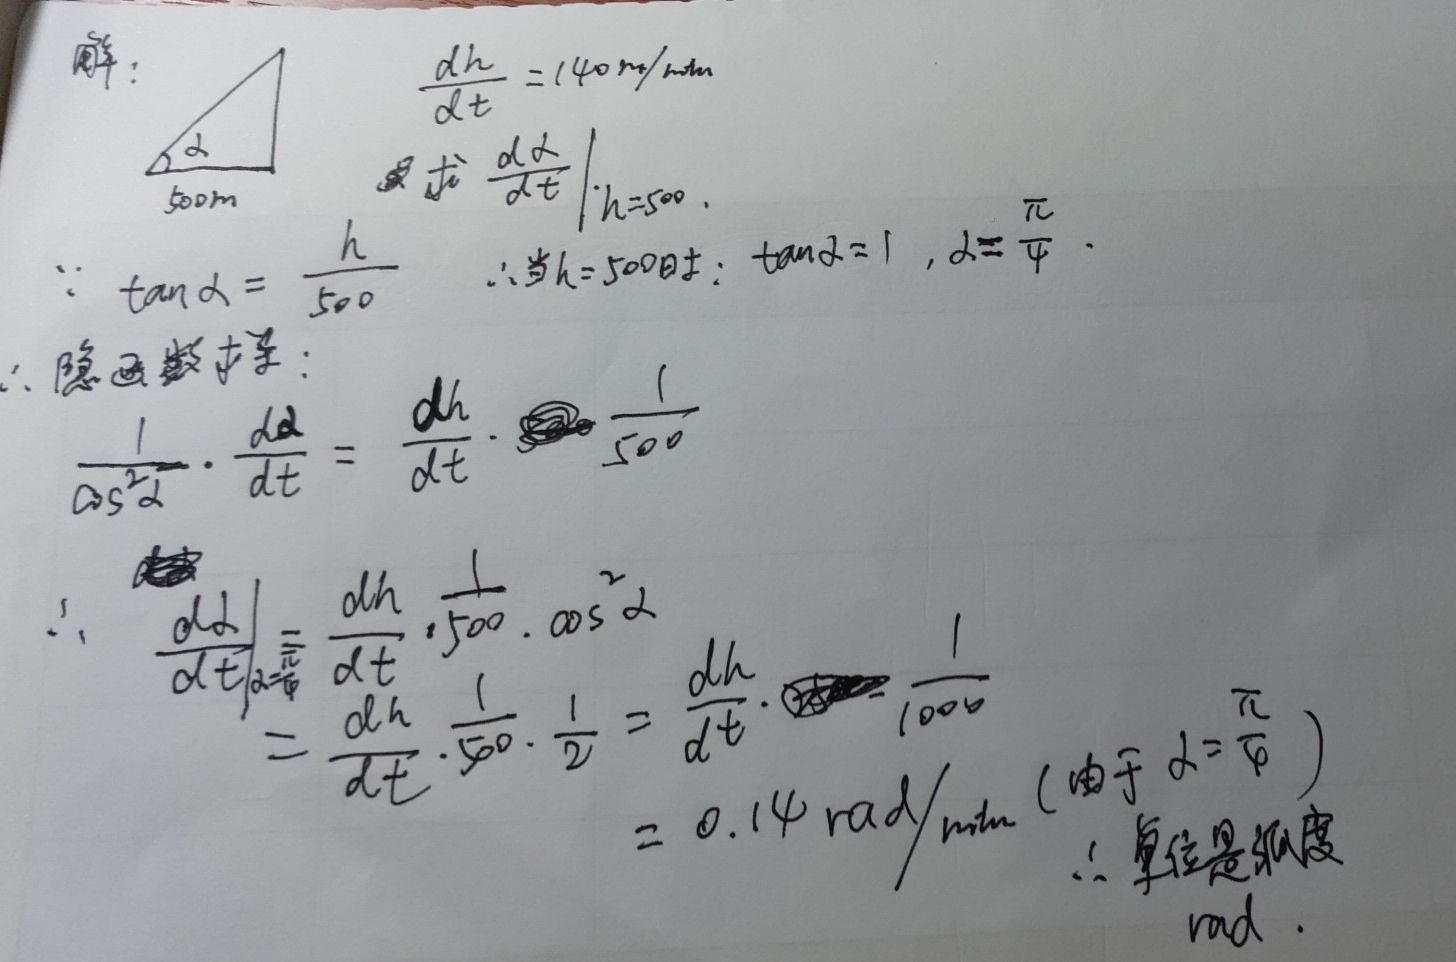 解：
α
500m
dh/dt = 140 m/min
求 dα/dt | h=500 .
∵ tanα = h/500 ∴当h=500时： tanα=1 , α= π/4 .
∴ 隐函数求导：
1/cos²α · dα/dt = dh/dt · 1/500
∴ dα/dt | α=π/4 = dh/dt · 1/500 · cos²α
= dh/dt · 1/500 · 1/2 = dh/dt · 1/1000
= 0.14 rad/min (由于 α= π/4 )
∴ 单位是弧度
rad .